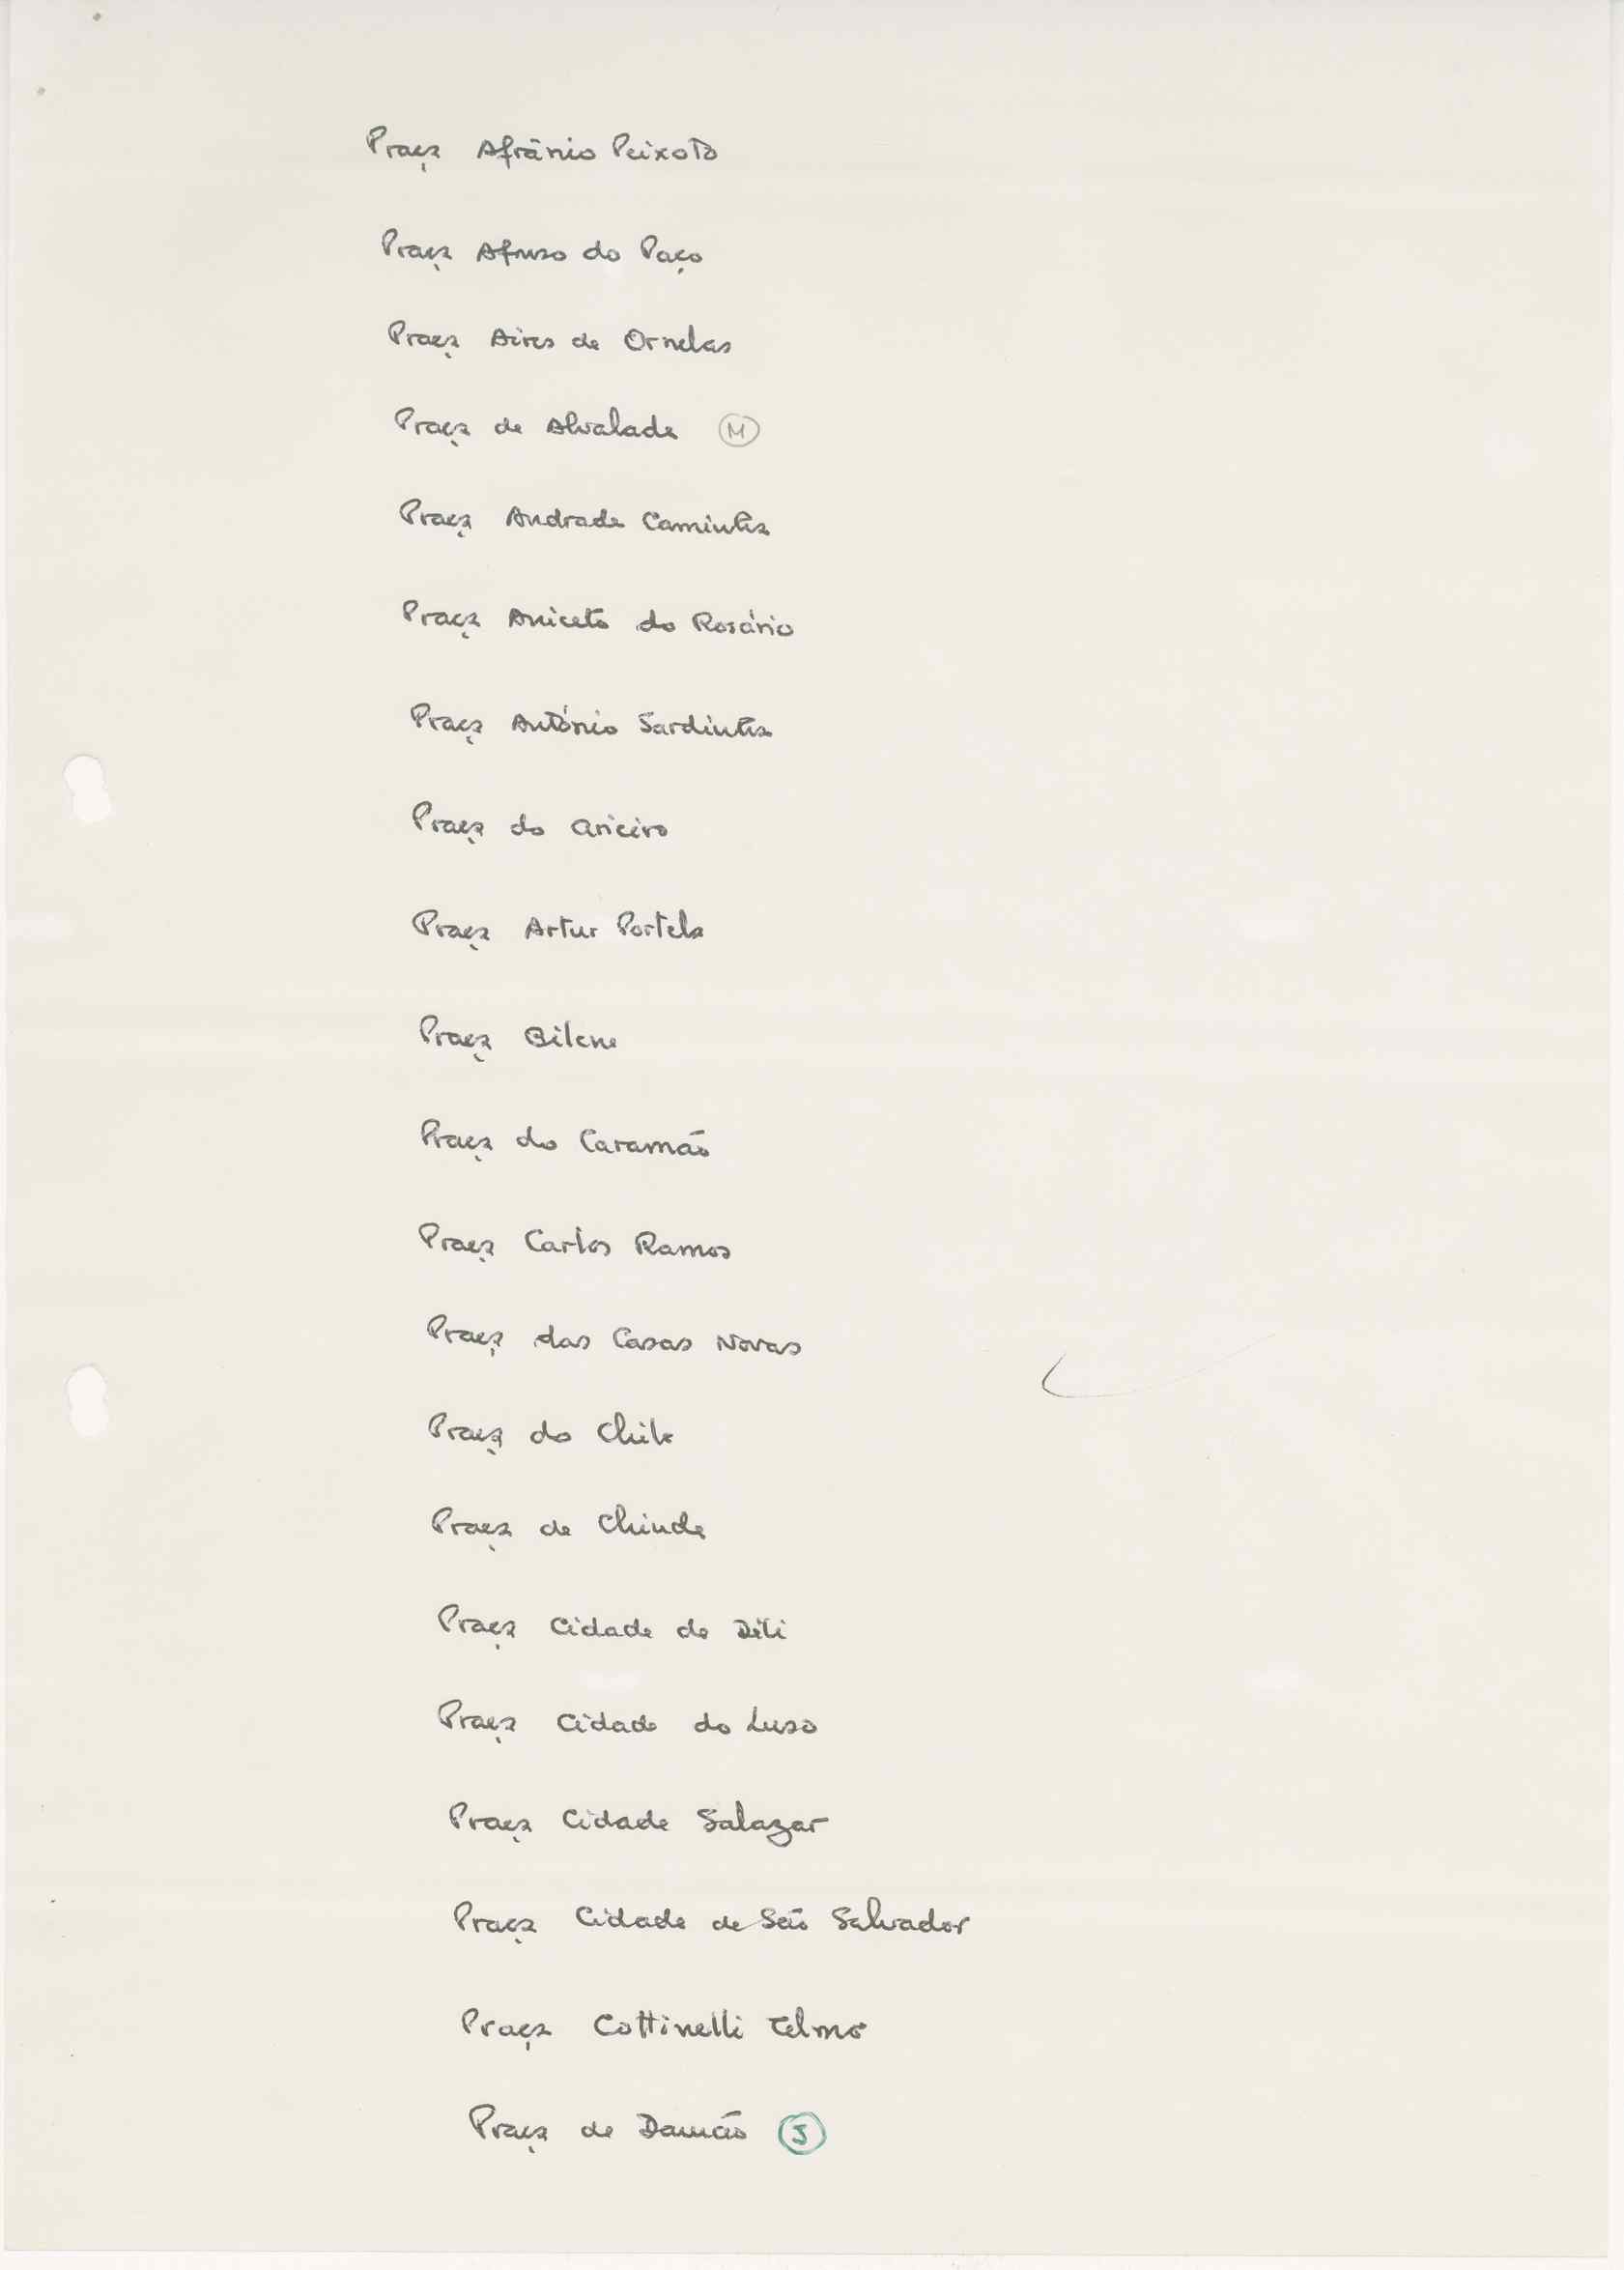 Praça Afrânio Peixoto
Praça Afonso do Paço
Praça Aires de Ornelas
Praça de Alvalade M
Praça Andrade Caminha
Praça Aniceto do Rosário
Praça António Sardinha
Praça do Arieiro
Praça Artur Portela
Praça Bilene
Praça do Caramão
Praça Carlos Ramos
Praça das Casas Novas
Praça do Chile
Praça de Chinde
Praça Cidade de Dili
Praça Cidade do Luso
Praça Cidade Salazar
Praça Cidade de São Salvador
Praça Cottinelli Telmo
Praça de Damão J